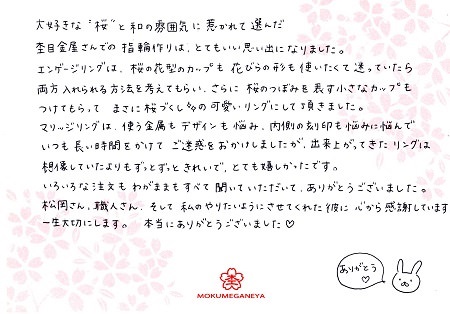 大好きな“桜”と和の雰囲気に惹かれて選んだ
杢目金屋さんでの指輪作りは、とてもいい思い出になりました。
エンゲージリングは、桜の花型のカップも花びらの形も使いたくて迷っていたら
両方入れられる方法を考えてもらい、さらに桜のつぼみを表す小さなカップも
つけてもらって まさに桜づくし♪♪の可愛いリングにして頂きました。
マリッジリングは、使う金属もデザインも悩み、内側の刻印も悩みに悩んで
いつも長い時間をかけて ご迷惑をおかけしましたが、出来上がってきたリングは
想像していたよりもずっとずっときれいで、とても嬉しかったです。
いろいろな注文もわがままもすべて聞いていただいて、ありがとうございました。
松岡さん、職人さん、そして私のやりたいようにさせてくれた彼に心から感謝しています
一生大切にします。 本当にありがとうございました♡
ありがとう
♡
MOKUMEGANEYA